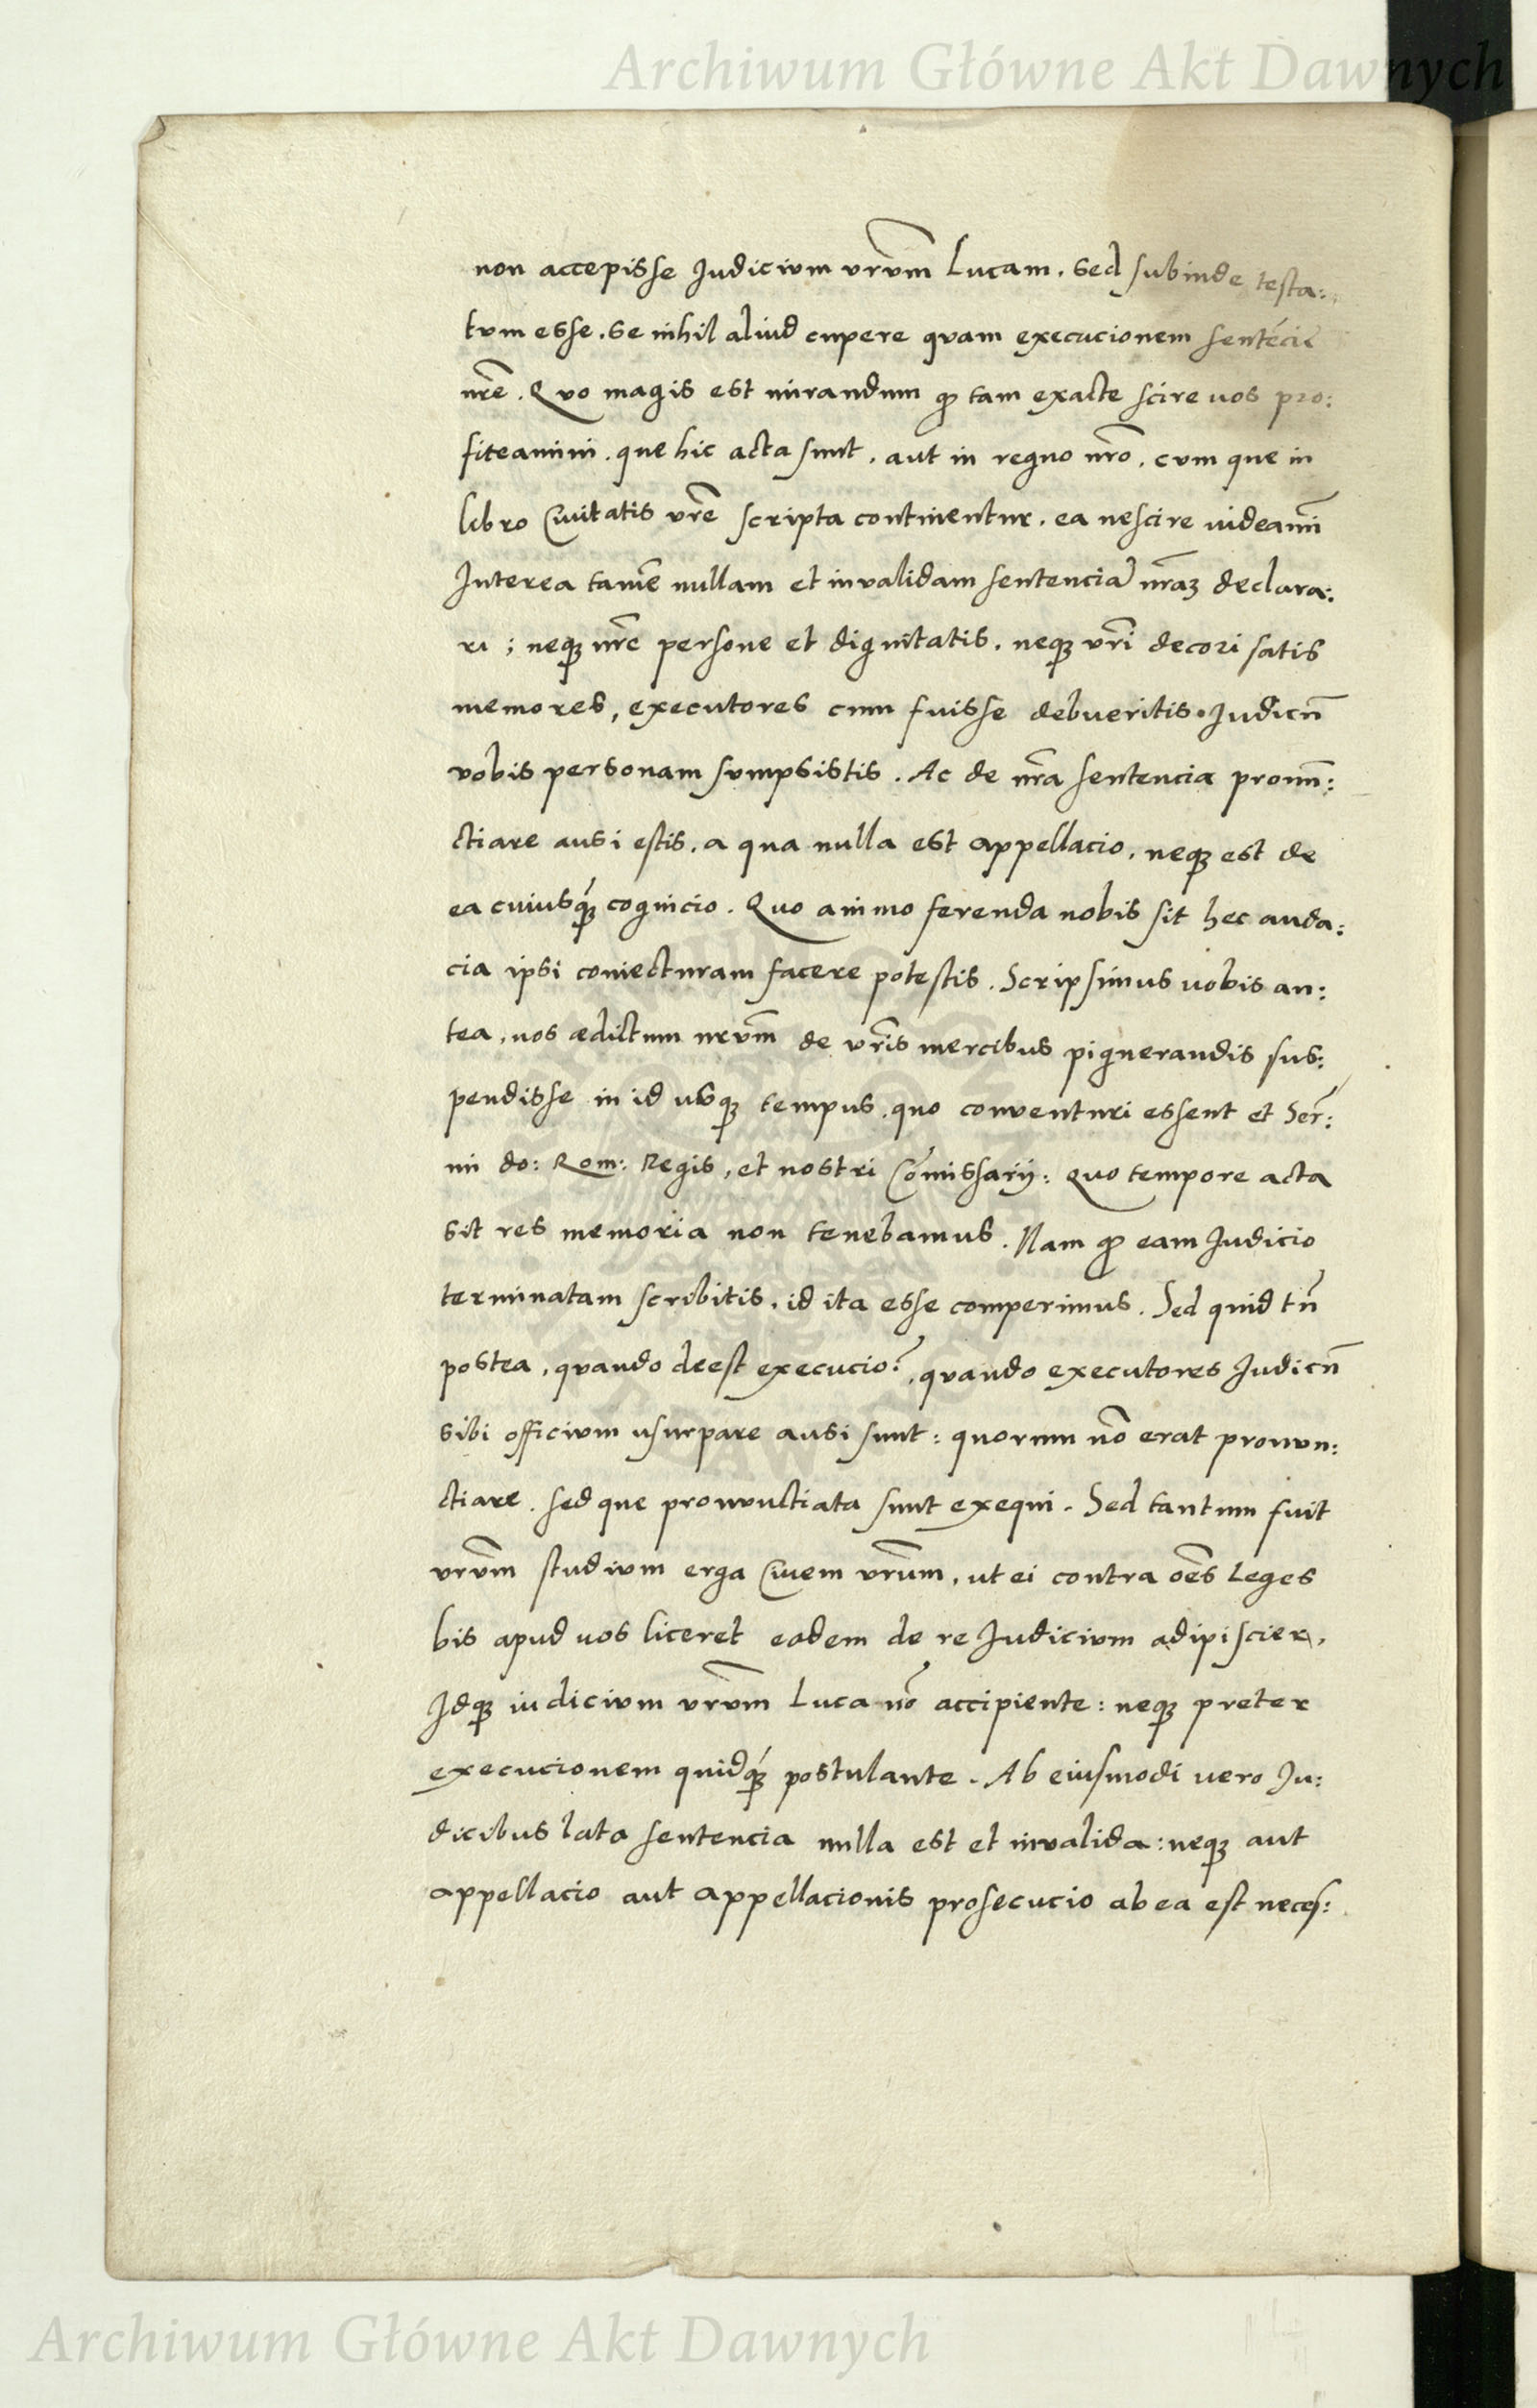 Archiwum Główne Akt Dawnych
non accepisse Judicium vr̃vm Lucam. Sed subinde testa:
tvm esse. Se nihil aliud cupere quam execucionem sentẽcie
nrẽ. Quo magis est mirandum ꝙ tam exacte scire vos pro:
fiteamini. que hic acta sunt. aut in regno nrõ. cvm que in
libro Civitatis vrẽ scripta continentur. ea nescire videamĩ
Interea tamẽ nullam et invalidam sentenciã nrãꝫ declara:
ri ; neqꝫ nrẽ persone et dignitatis. neqꝫ vrĩ decori satis
memores, executores cum fuisse debueritis. Judicũ
vobis personam sumpsistis. Ac de nrã sentencia pronũ:
ctiare ausi estis. a qua nulla est appellacio. neqꝫ est de
ea cuiusq̃ꝫ cognicio. Quo animo ferenda nobis sit hec auda:
cia ipsi coniecturam facere potestis. Scripsimus vobis an:
tea, nos ædictum nrvm̃ de vrĩs mercibus pignerandis sus:
pendisse in id usqꝫ tempus. quo conventuri essent et Ser̃:
mi do: Rom: Regis, et nostri Com̃issarij: Quo tempore acta
sit res memoria non tenebamus. Nam ꝙ eam Judicio
terminatam scribitis. id ita esse comperimus. Sed quid tñ
postea, quando deest execucio? quando executores Judicũ
sibi officium usurpare ausi sunt: quorum nõ erat pronun:
ctiare. sed que pronunctiata sunt exequi. Sed tantum fuit
vrvm̃ studium erga Civem vrum̃, ut ei contra oẽs Leges
bis apud vos liceret eadem de re Judicium adipiscier.
Idqꝫ iudicium vrvm̃ Luca nõ accipiente: neqꝫ preter
execucionem quidq̃ꝫ postulante. Ab eiusmodi vero Ju:
dicibus lata sentencia nulla est et invalida: neqꝫ aut
appellacio aut appellacionis prosecucio ab ea est neces:
Archiwum Główne Akt Dawnych